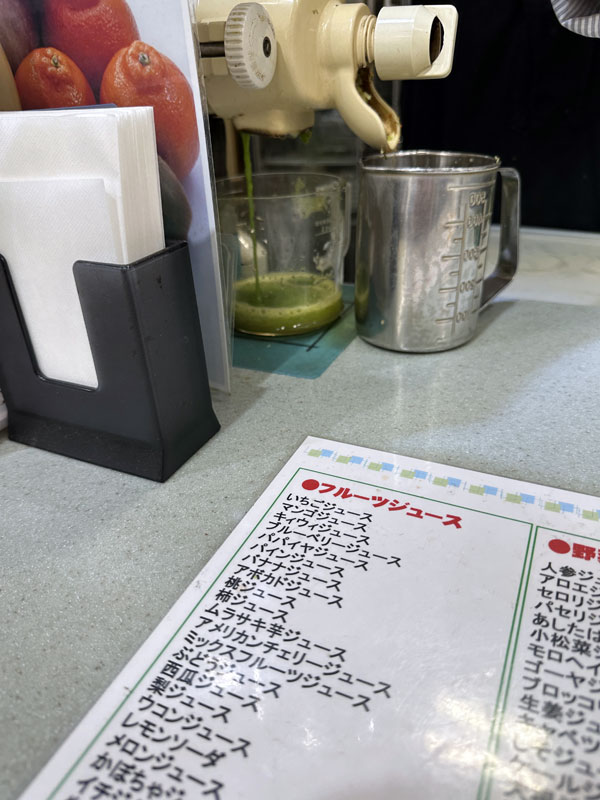 ●フルーツジュース
いちごジュース
マンゴジュース
キィウィジュース
ブルーベリージュース
パパイヤジュース
パインジュース
バナナジュース
アボカドジュース
桃ジュース
柿ジュース
ムラサキ芋ジュース
アメリカンチェリージュース
ミックスフルーツジュース
ぶどうジュース
西瓜ジュース
梨ジュース
ウコンジュース
レモンソーダ
メロンジュース
かぼちゃジ
イチジ
●野
人参ジュ
アロエジ
セロリジ
パセリジ
あしたば
小松菜ジ
モロヘイ
ゴーヤジ
ブロッコ
生姜ジュ
キャベツ
しそジュ
ケールジ